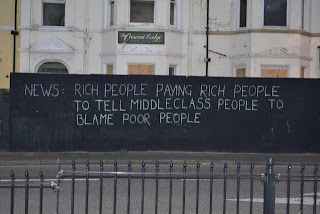 The Crescent Lodge
NEWS: RICH PEOPLE PAYING RICH PEOPLE
TO TELL MIDDLECLASS PEOPLE TO
BLAME POOR PEOPLE